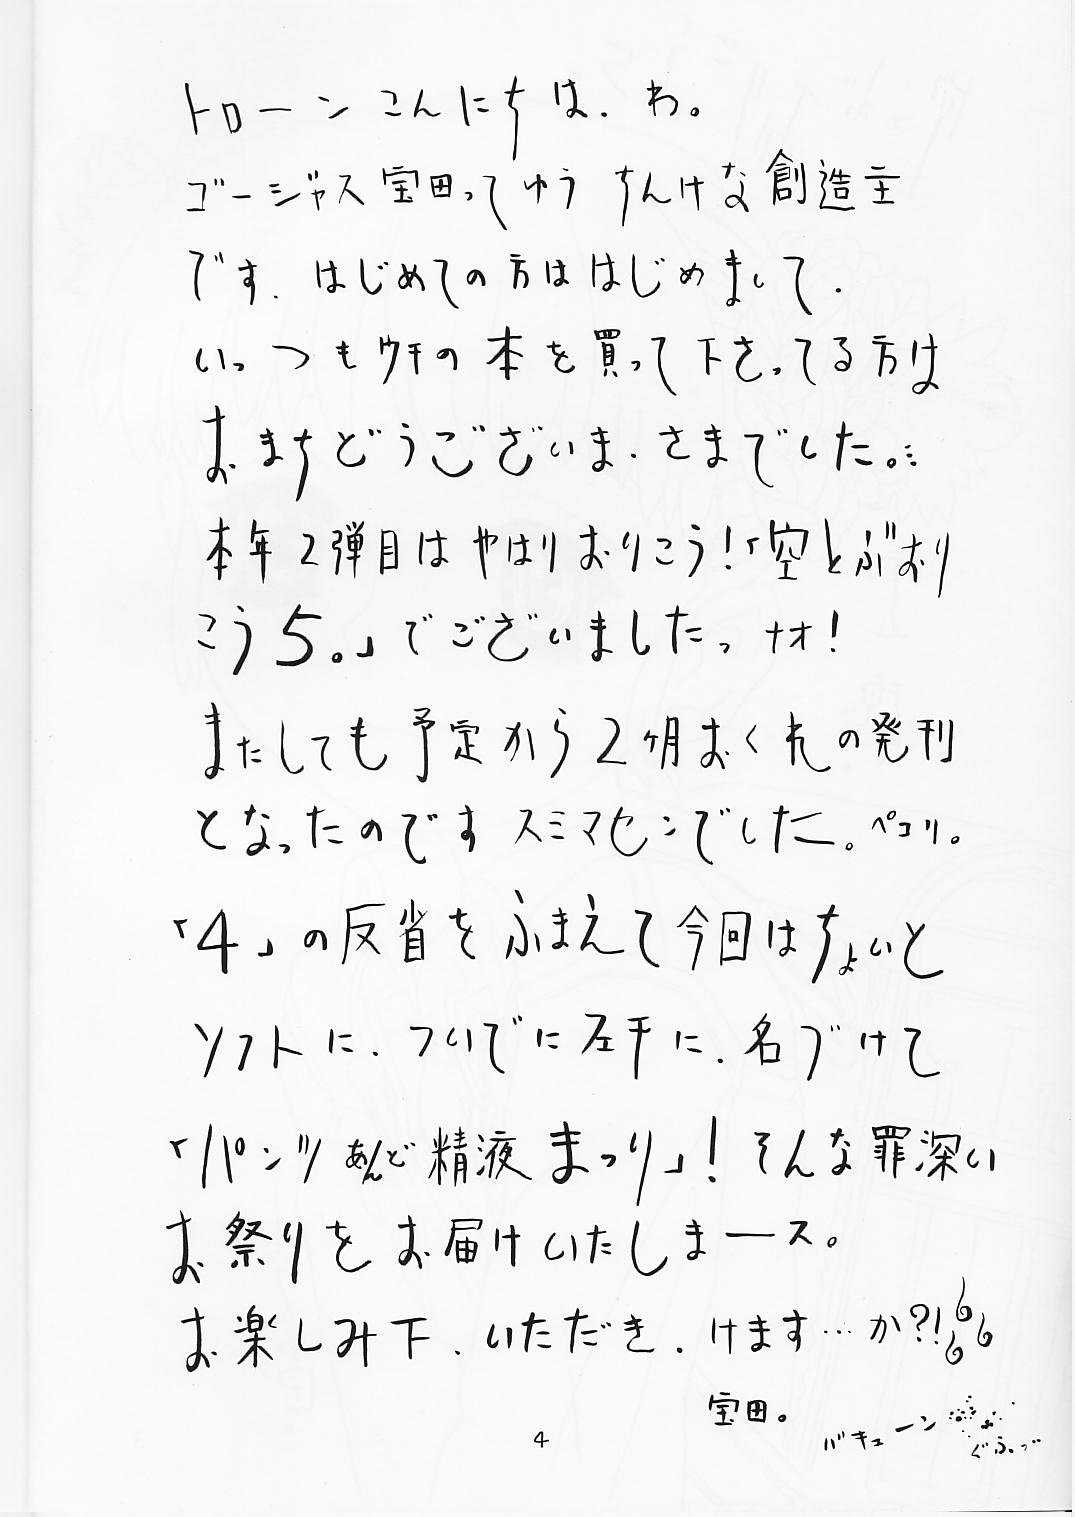 トローン こんにちは. わ。
ゴージャス宝田ってゆう ちんけな創造主
です. はじめての方ははじめまして.
いっつもウチの本を買って下さってる方は
おまちどうございま.さまでした。
本年2弾目はやはりおりこう!「空とぶおり
こう5。」でございましたっ ナオ!
またしても予定から2ヶ月おくれの発刊
となったのです スミマセンでした。ペコリ。
「4」の反省をふまえて今回はちょいと
ソフトに. ついでに左手に. 名づけて
「パンツあんど精液まつり」! そんな罪深い
お祭りをお届けいたしまース。
お楽しみ下. いただき. けます…か?!
宝田。
バキューン
ぐふっ
4